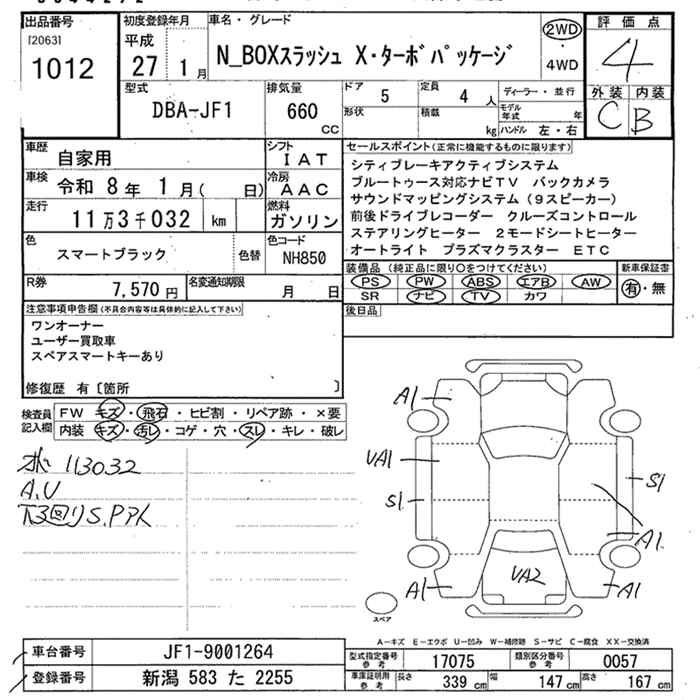 出品番号
[2063]
1012
初度登録年月
平成
27 1月
車名・グレード
N_BOXスラッシュ X・ターボパッケージ
2WD
・
4WD
評価点
4
外装 内装
C B
型式
DBA-JF1
排気量
660
cc
ドア 5
定員 4 人
形状
積載 kg
ディーラー・並行
モデル年式 年
ハンドル 左・右
車歴 自家用
シフト IAT
車検 令和 8年 1月( 日)
冷房 AAC
走行 11万3千032 km
燃料 ガソリン
色 スマートブラック 色替
色コード NH850
R券 7,570円
名変通知期限 月 日
セールスポイント(正常に機能するものに限ります)
シティブレーキアクティブシステム
ブルートゥース対応ナビTV バックカメラ
サウンドマッピングシステム(9スピーカー)
前後ドライブレコーダー クルーズコントロール
ステアリングヒーター 2モードシートヒーター
オートライト プラズマクラスター ETC
装備品(純正品に限り○をつけてください)
PS PW ABS エアB AW
SR ナビ TV カワ
新車保証書
有・無
後日品
注意事項申告欄(不具合内容等は具体的に記入して下さい)
ワンオーナー
ユーザー買取車
スペアスマートキーあり
修復歴 有〔箇所 〕
検査員記入欄
FW キズ・飛石・ヒビ割・リペア跡・×要
内装 キズ・汚レ・コゲ・穴・スレ・キレ・破レ
113032
A,U
下回りS.Pアト
A1
VA1
S1
S1
A1
A1
VA2
A1
スペア
A-キズ E-エクボ U-凹み W-補修跡 S-サビ C-腐食 XX-交換済
車台番号 JF1-9001264
登録番号 新潟 583 た 2255
型式指定番号 参考 17075
類別区分番号 参考 0057
車庫証明用 参考 長さ 339cm 幅 147cm 高さ 167cm